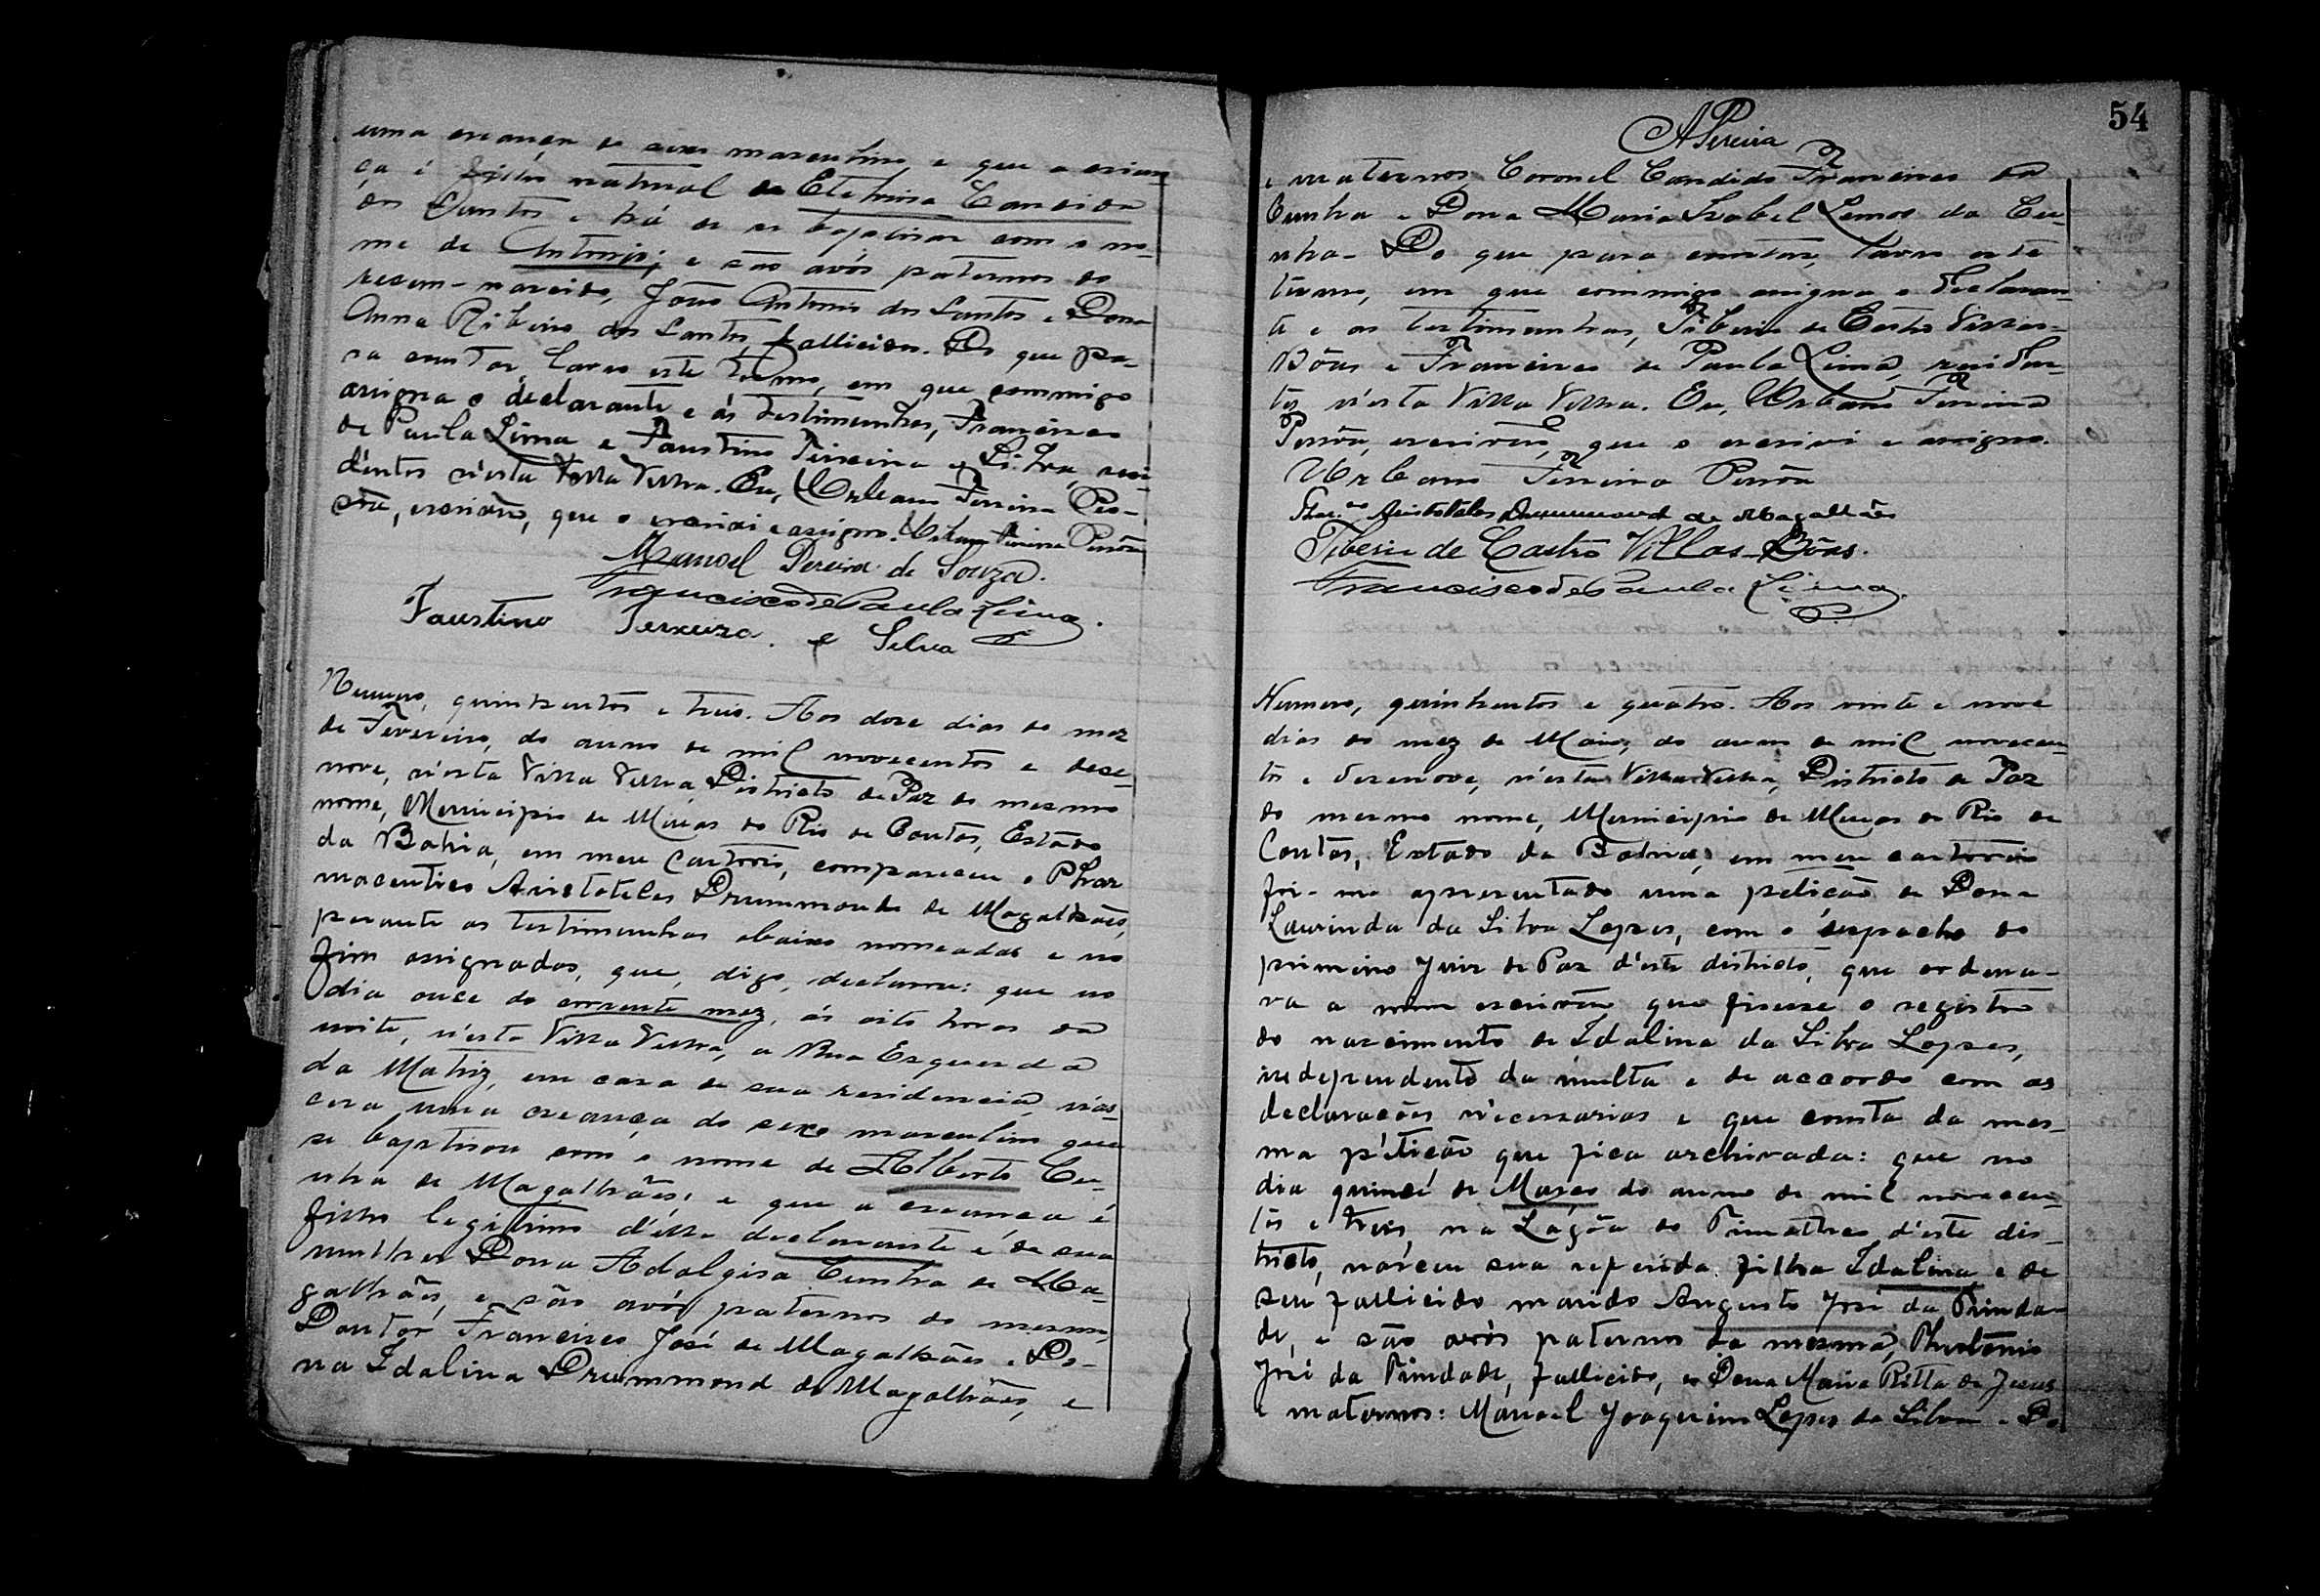 uma creança do sexo masculino, e que a crian-
ça é filho natural de Etelvina Candida
dos Santos e há de se baptisar com o no-
me de Antonio; e são avós paternos do
recem-nascido, João Antonio dos Santos e Dona
Anna Ribeiro dos Santos, fallicidos. Do que pa-
ra constar, lavro este termo, em que commigo
assigna o declarante e ás testimunhas, Francisco
de Paula Lima e Faustino Teixeira e Silva, resi-
dentes n'esta Villa Velha. Eu, Urbano Ferreira Pes-
sôa, escrivão, que o escrivi e assigno. Urbano Ferreira Pessôa
Manoel Pereira de Souza.
Francisco de Paula Lima.
Faustino Teixeira e Silva
Numero, quinhentos e treis. Aos doze dias do mez
de Fevereiro, do anno de mil novecentos e deze-
nove, n'esta Villa Velha, Districto de Paz do mesmo
nome, Municipio de Minas do Rio de Contas, Estado
da Bahia, em meu cartorio, compareceu o Phar
maceutico Aristoteles Drummond de Magalhães,
perante as testimunhas abaixo nomeadas e no
fim assignadas, que, digo, declarou: que no
dia onze do corrente mez, ás oito horas da
noite, n'esta Villa Velha, a Rua Esquerda
da Matriz, em casa de sua residencia, nas-
cera uma creança do sexo masculino que
se baptisou com o nome de Alberto Cu-
nha de Magalhães, e que a creança é
filho legitimo d'elle declarante e de sua
mulher Dona Adalgisa Cunha de Ma-
galhães, e são avós paternos do mesmo,
Doutor Francisco José de Magalhães e Do-
na Idalina Drummond de Magalhães, e
54
APereira
e maternos Coronel Candido Francisco da
Cunha e Dona Maria Izabel Lemos da Cu-
nha. Do que para constar, lavro este
termo, em que commigo assigna o declaran-
te e as testimunhas, Tiberio de Castro Villas-
Bôas e Francisco de Paula Lima, residen-
tes n'esta Villa Velha. Eu, Urbano Ferreira
Pessôa, escrivão, que o escrivi e assigno.
Urbano Ferreira Pessôa
Phar.co Aristoteles Drummond de Magalhães
Tiberio de Castro Villas-Bôas.
Francisco de Paula Lima.
Numero, quinhentos e quatro. Aos vinte e nove
dias do mez de Maio, do anno de mil novecen-
tos e dezenove, n'esta Villa Velha, Districto de Paz
do mesmo nome, Municipio de Minas do Rio de
Contas, Estado da Bahia, em meu cartorio
foi-me apresentado uma petição de Dona
Laurinda da Silva Lopes, com o despacho do
primeiro Juiz de Paz d'este districto, que ordena-
va a mim escrivão que fisesse o registro
do nascimento de Idalina da Silva Lopes,
independente da multa e de accordo com as
declarações necessarias e que consta da mes-
ma petição que fica archivada: que no
dia quinze de Março do anno de mil novecen-
tos e treis, na Lagôa do d'este dis-
tricto, nasceu sua referida filha Idalina, e de
seu fallicido marido Augusto José da Trinda-
de, e são avós paternos da mesma,
José da Trindade, fallicido, e Dona Maria Ritta de Jesus
e maternos: Manoel Joaquim Lopes da Silva e Do